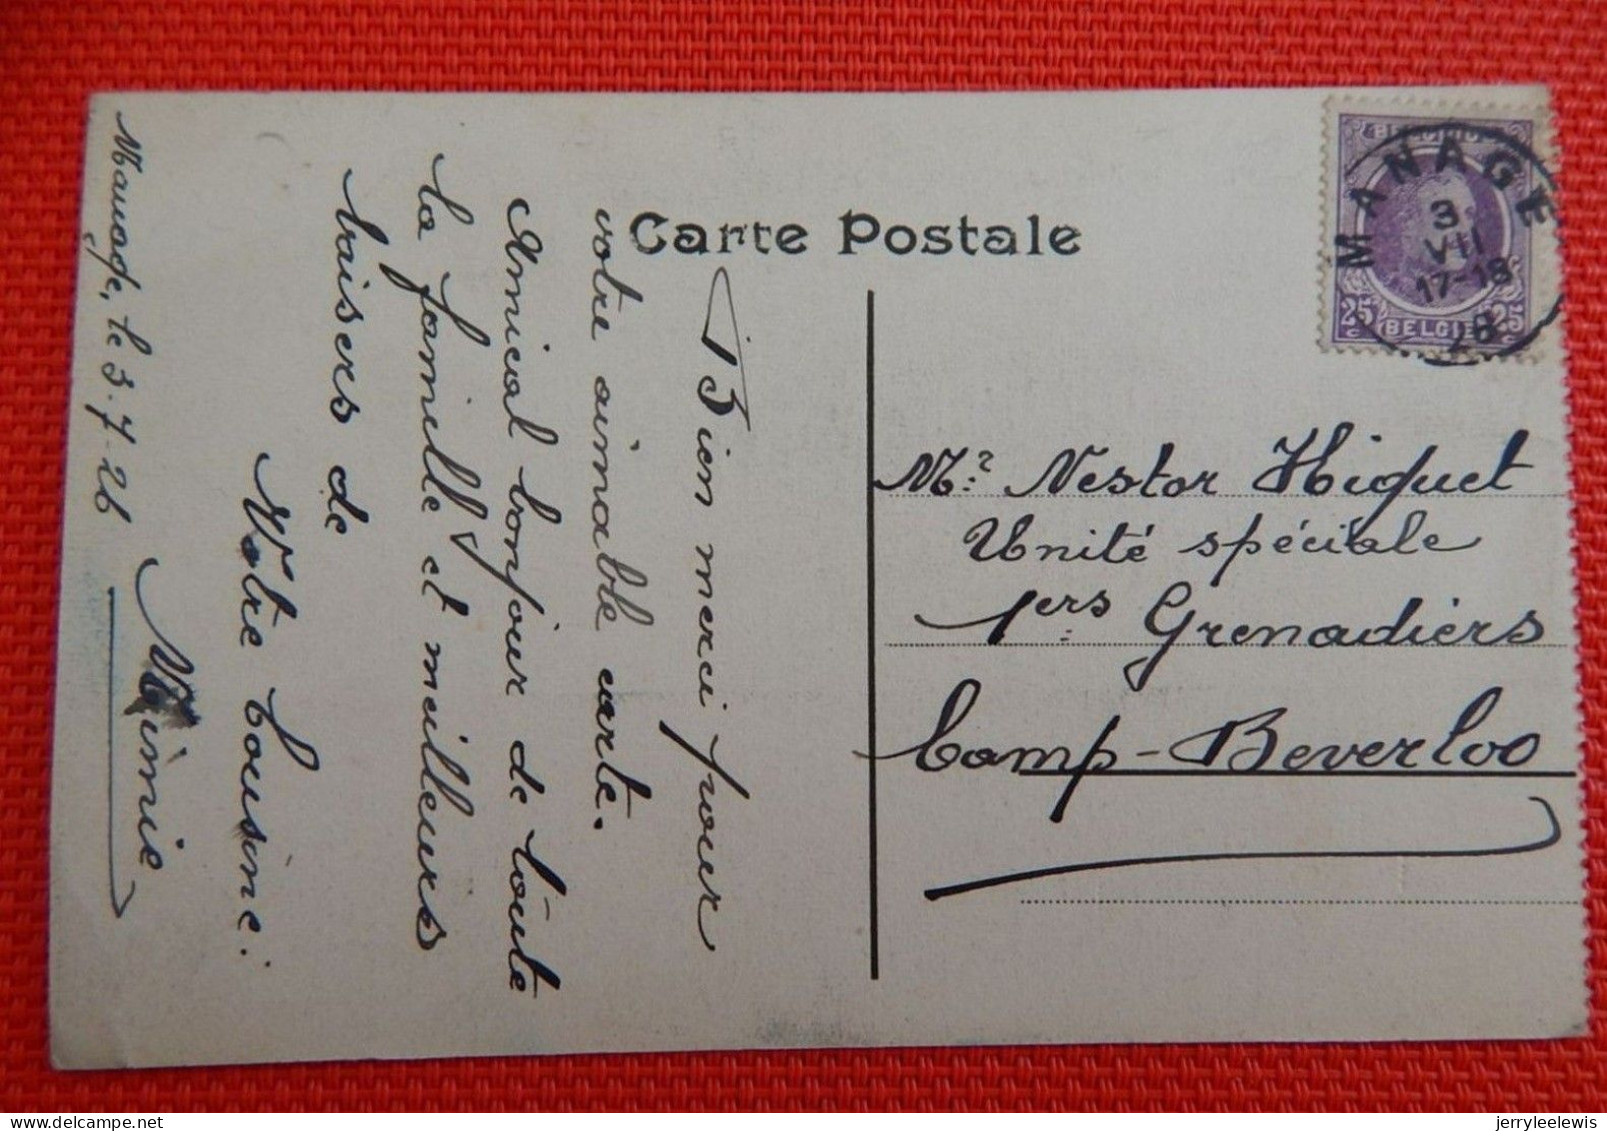 Carte Postale
BELGIQUE
MANAGE
3
VII
17-18
26
25 BELGIE 25
Mr. Nestor Hiquet
Unité spéciale
1ers Grenadiers
Camp-Beverloo
Manage, le 3.7.26
Bien merci pour
votre aimable carte.
Amical bonjour de toute
la famille et meilleurs
baisers de
Votre Cousine:
Mimie
delcampe.net
jerryleelewis